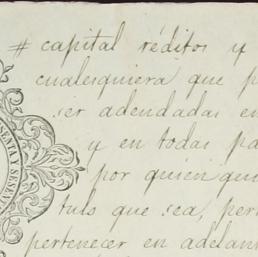 # capital réditos y
cualesquiera que p
ser adeudadas en
y en todas pa
por quien qui
tulo que sea, per
pertenecer en adelan
SENTA Y SESEN